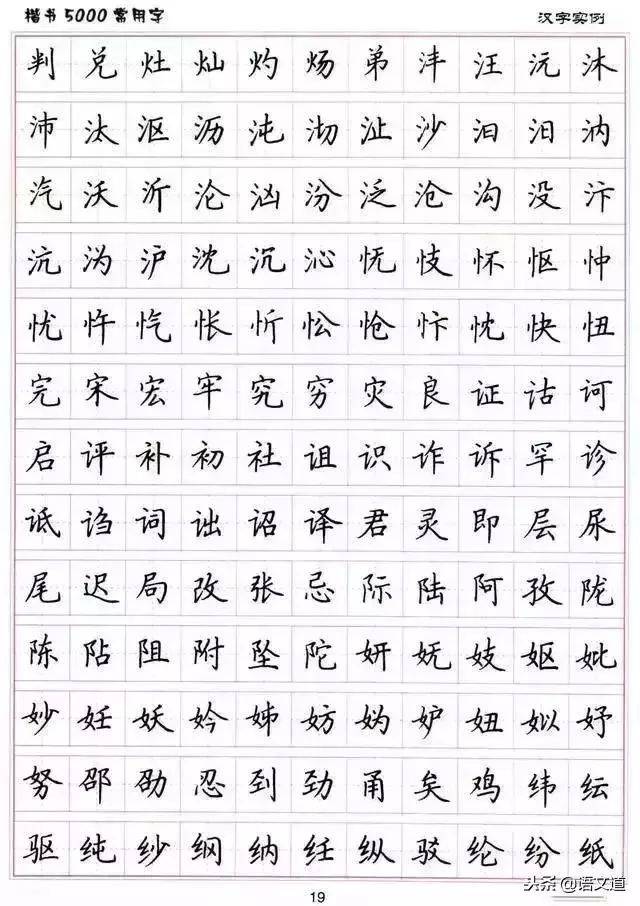 楷书5000常用字 汉字实例
判 兑 灶 灿 灼 炀 弟 沣 汪 沅 沐
沛 汰 沤 沥 沌 沏 沚 沙 汩 汨 汭
汽 沃 沂 沦 汹 汾 泛 沧 沟 没 汴
沆 沩 沪 沈 沉 沁 怃 忮 怀 怄 忡
忧 忤 忾 怅 忻 忪 怆 忭 忱 快 忸
完 宋 宏 牢 究 穷 灾 良 证 诂 诃
启 评 补 初 社 诅 识 诈 诉 罕 诊
诋 诌 词 诎 诏 译 君 灵 即 层 尿
尾 迟 局 改 张 忌 际 陆 阿 孜 陇
陈 阽 阻 附 坠 陀 妍 妩 妓 妪 妣
妙 妊 妖 妗 姊 妨 妫 妒 妞 姒 妤
努 邵 劭 忍 到 劲 甬 矣 鸡 纬 纭
驱 纯 纱 纲 纳 纴 纵 驳 纶 纷 纸
19
头条@语文道